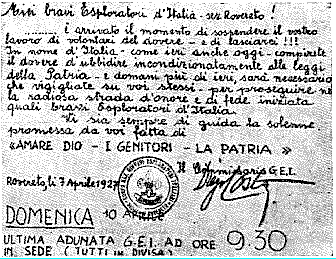 Miei bravi Esploratori d'Italia - sez. Rovereto!
È arrivato il momento di sospendere il vostro
lavoro di volontari del dovere - e di lasciarci!!!
In nome d'Italia - come ieri anche oggi - compirete
il dovere d'ubbidire incondizionatamente alle leggi
della Patria - e domani più di ieri, sarà necessario
che vigiliate su voi stessi - per proseguire nel
la radiosa strada d'onore e di fede iniziata
quali bravi Esploratori di Italia.
Vi sia sempre di guida la solenne
promessa da voi fatta di
«AMARE DIO - I GENITORI - LA PATRIA»
Il Commissario G.E.I.
Rovereto, li 7 Aprile 1927
DOMENICA 10 APRILE
ULTIMA ADUNATA G.E.I. AD ORE 9.30
IN SEDE (TUTTI IN DIVISA)